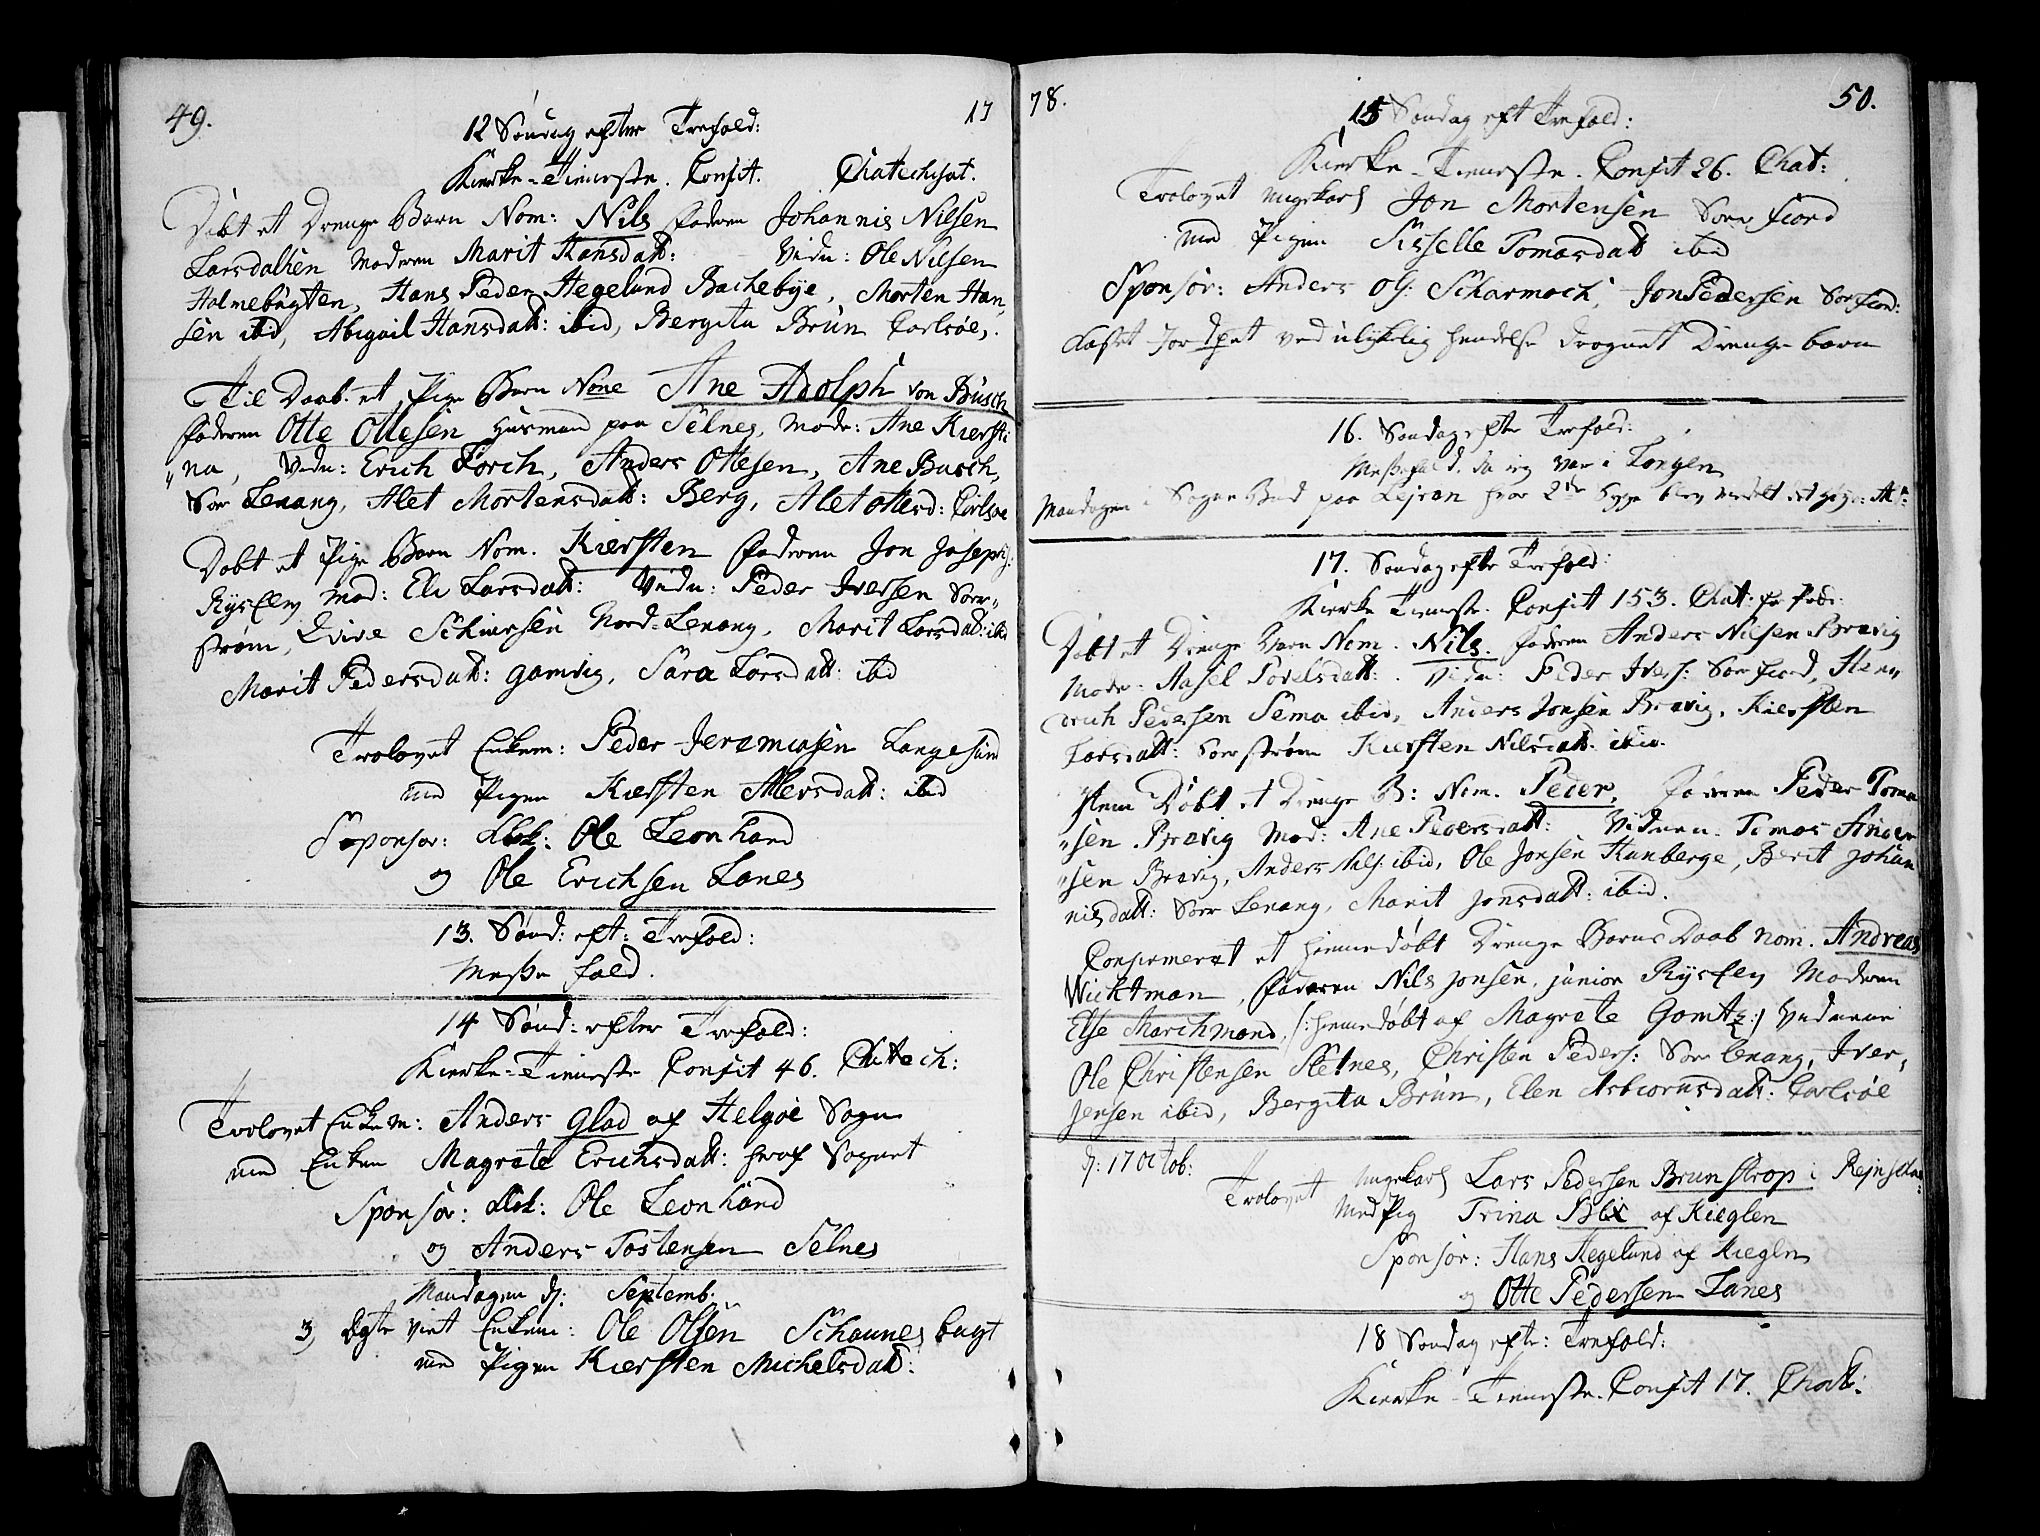 49. 17
12 Søndag efter Trefold:
Kierke-Tieneste. Confit. Chatechisat.
Døbt et Drenge Barn Nom: Nils faderen Johannis Nilsen
Larsdalsen moderen Marit Hansdatt: Vidn: Ole Nilsen
Holmebugten, Hans Peder Hegelund Bachebye, Morten Han„
sen ibid, Abigail Hansdatt: ibid, Bergita Brun Carlsøe,.
Til Daab. et Pige Barn None Ane Adolph von Busch
faderen Otte Ottesen Husmand paa Selnes, Mode: Ane Kiersti
„na, Vidn: Erich Lorch, Anders Ottesen, Ane Busch,
Sør Lenang, Alet Mortensdatt: Berg, Alet Ottesd: Carlsøe
Døbt et Pige Barn Nom. Kiersten faderen Jon Joseph:
Rysely Mod: Eli Larsdatt: Vidn: Peder Iversen Sør„
strøm, Sivert Nord-Lenang, Marit Larsdat: ibid
Marit Pedersdatt: gamvig, Sara Larsdatt: ibid
Trolovet Enkem: Peder Jeremiasen Langesund
med Pigen Kiersten Alersdatt: ibid
Sponsor: Klok: Ole Leonhard
og Ole Erichsen Lanes
13. Sønd: eft: Trefold:
Messe fald.
14 Sønd: efter Trefold:
Kierke-Tieneste Confit 46. Chatech:
Trolovet Enkem: Anders Glad af Helgøe Sogn
med Enken Magrete Erichsdatt: her af Sognet
Sponsor: Klok: Ole Leonhard
og Anders Tostensen Selnes
Mandagen d: Septemb:
3, Egte viet Enkem: Ole Olsen Schaunes bugt
med Pigen Kiersten Michelsdatt:
78. 50.
15 Søndag eft Trefold:
Kierke-Tieneste. Confit 26. Chat:
Trolovet ungkarl Jon Mortensen Sørfiord
med Pigen Sisselle Tomasdatt ibid
Sponsor: Anders Ols: Scharmoch, Jon Pedersen Sørfiord:
kastet Jord paa et ved ulykelig hendelse Drognet Drenge barn
16. Søndag efter Trefold:
Messefald, da jeg var i Longen
Mandagen i Sogne Bud paa Lejran hvor 2de Syge blev medelt det
17. Søndag efter Trefold:
Kierke Tieneste. Confit 153. Chat:
Døbt et Drenge Barn Nom. Nils. faderen Anders Nilsen Bravig
Mode: Aasel Povelsdatt: Vidn: Peder Ivers: Sørfiord, Hen„
drich Pedersen Sema ibid, Anders Jonsen Bravig, Kiersten
Larsdatt: Sørstrøm Kiersten Nilsdatt. ibid.
Item Døbt et Drenge B: Nom. Peder, faderen Peder Toma
„sen Bravig Mod: Ane Pedersdatt: Vidnen: Tomas Ander
„sen Bravig, Anders Nils: ibid, Ole Jonsen Kanberge, Berit Johan
nisdatt: Sør Lenang, Marit Jonsdatt: ibid.
Confirmeret et hiemedøbt Drenge Barns Daab nom. Andreas
Wicktman, faderen Nils Jonsen, junior Rysely Moderen
Else Marchmand, /:hiemedøbt af Magrete Gomtz:/ Vidnene
Ole Christensen Sletnes, Christen Peders: Sør lenang, Iver„
Jensen ibid, Bergita Brun, Elen Asbiornsdatt: Carlsøe
d: 17 Octob:
Trolovet ungkarl Lars Pedersen Brunstrop i
Med Pig Trina Blix af Kieglen
Sponsor: Hans Hegelund af Kieglen
og Otte Pedersen Lanes
18 Søndag eft: Trefold:
Kierke-Tieneste. Confit 17. Chat: